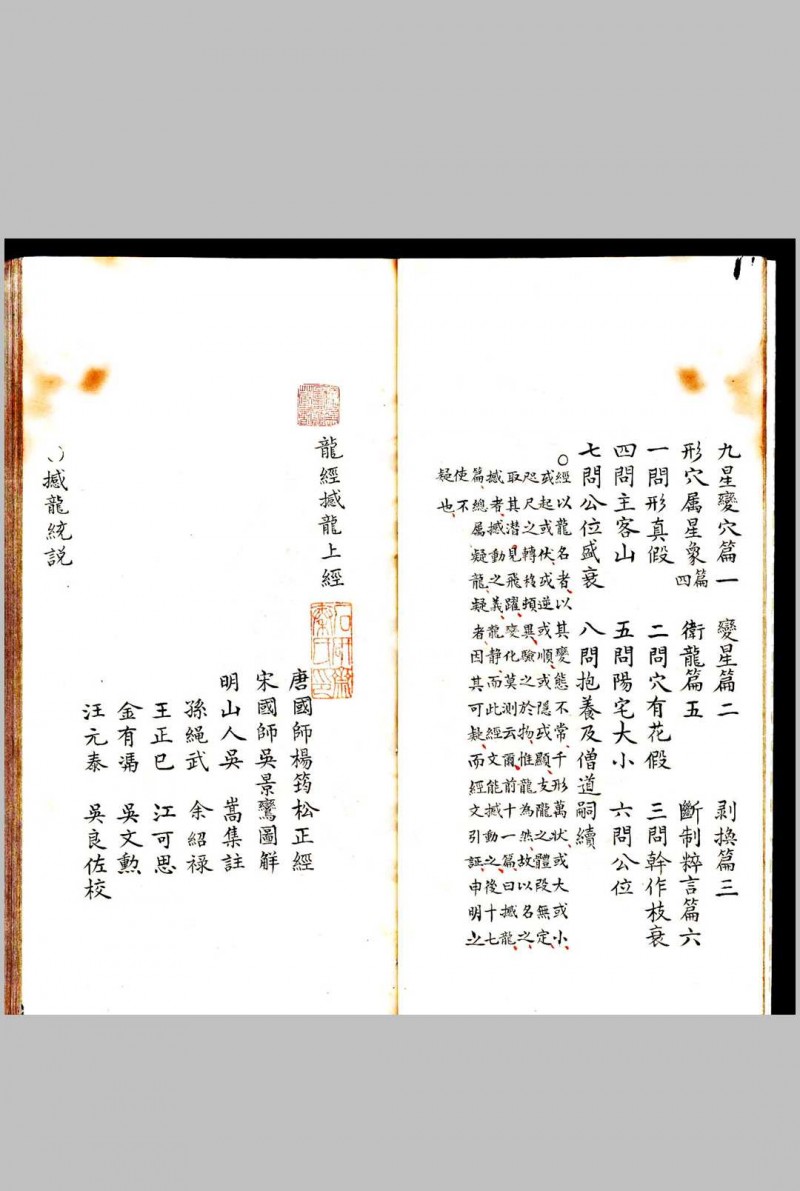 九星變穴篇一 變星篇二 剥換篇三
形穴属星象篇四 衛龍篇五 斷制粹言篇六
一問形真假 二問穴有花假 三問幹作枝衰
四問主客山 五問陽宅大小 六問公位
七問公位盛衰 八問抱養及僧道嗣續
○經以龍名者以其變態不常千形萬状或大或小
或起或伏或逆或順或隐或顯支隴之體段無定
咫尺之轉移頻異驗之於物惟龍為然故以名之
取其潜見飛躍變化莫測云爾前十一篇曰撼龍
撼者撼動之義龍静而此經文能撼動之後十七
篇總属疑龍疑者因其可疑而經文引証申明之
使不
疑也
龍經撼龍上經
石研齋秦氏印
唐國師楊筠松正經
宋國師吳景鸞圖解
明山人吳 嵩集註
孫繩武 余紹禄
王正巳 江可思
金有漹 吳文勲
汪元泰 吳良佐校
○撼龍統説